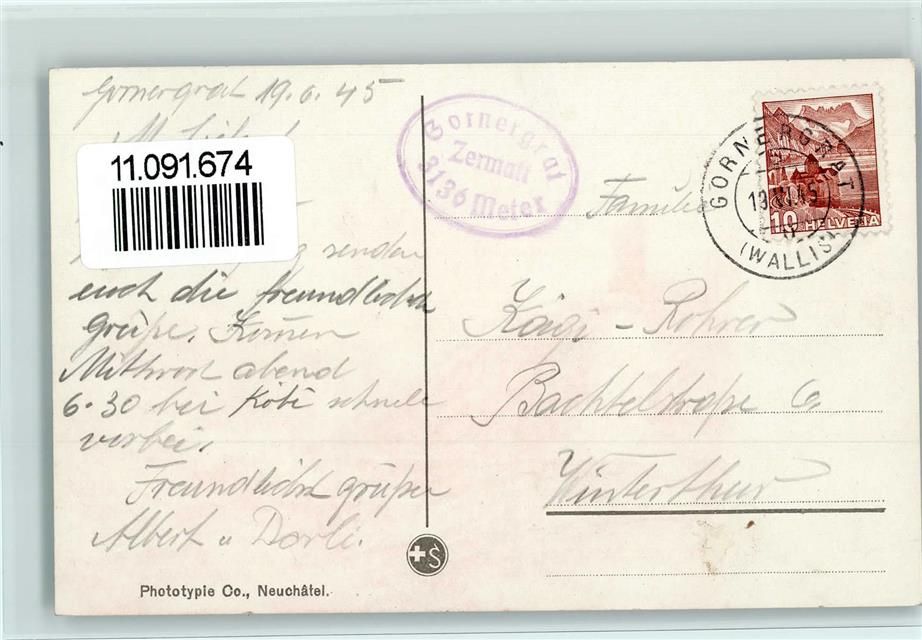 Gornergrat 19.6.45
11.091.674
senden
euch die freundlichst
Grüße. Kommen
Mittwoch abend
6.30 bei Köbi schnell
vorbei.
Freundlichst grüßen
Albert u Dorli.
Phototypie Co., Neuchâtel.
Gornergrat
Zermatt
3136 Meter
GORNERGRAT
(WALLIS)
10 HELVETIA
Familie
Kägi-Rohrer
Bachtelstraße 6
Winterthur